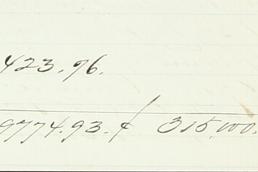 423.96.
9774.93.¢ 315,000.